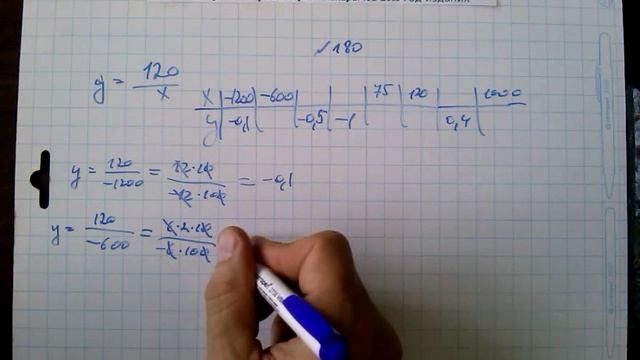 год издания
√180
y = 120/x
x | -1200 | -600 | | | 75 | 120 | | 1000
y | -0,1 | | -0,5 | -1 | | | 0,4 |
y = 120/-1200 = 12·10/-12·100 = -0,1
y = 120/-600 = 6·2·10/-6·100